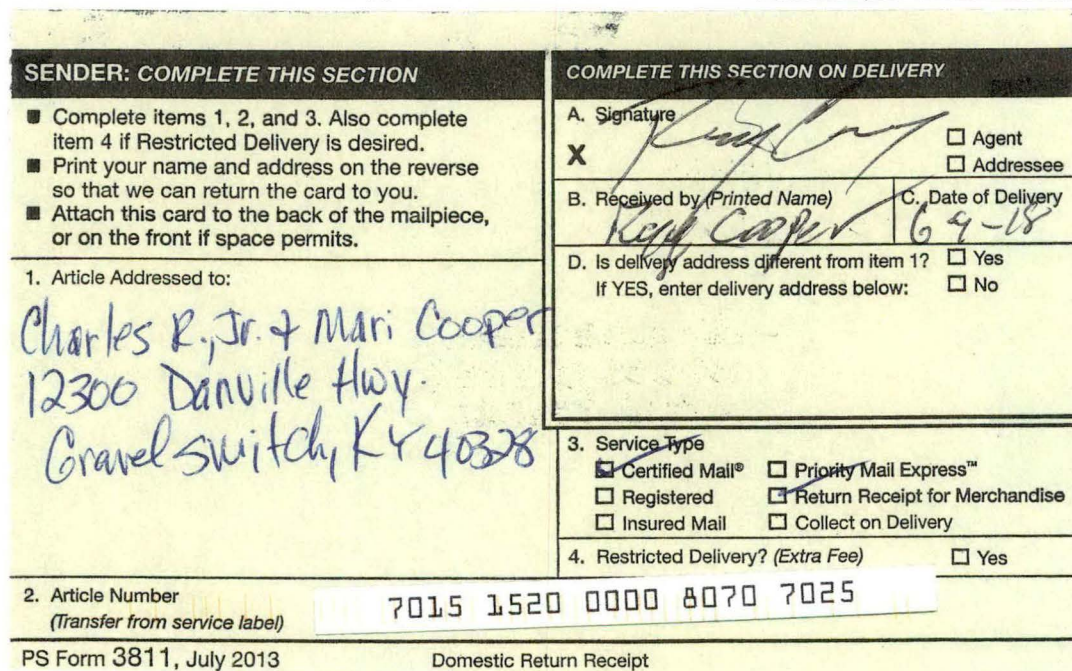 SENDER: COMPLETE THIS SECTION
■ Complete items 1, 2, and 3. Also complete
item 4 if Restricted Delivery is desired.
■ Print your name and address on the reverse
so that we can return the card to you.
■ Attach this card to the back of the mailpiece,
or on the front if space permits.
1. Article Addressed to:
Charles R., Jr. & Mari Cooper
12300 Danville Hwy.
Gravel Switch, KY 40328
2. Article Number
(Transfer from service label)
7015 1520 0000 8070 7025
COMPLETE THIS SECTION ON DELIVERY
A. Signature
X
☐ Agent
☐ Addressee
B. Received by (Printed Name)
Cooper
C. Date of Delivery
6 9-18
D. Is delivery address different from item 1? ☐ Yes
If YES, enter delivery address below: ☐ No
3. Service Type
☑ Certified Mail® ☐ Priority Mail Express™
☐ Registered ☑ Return Receipt for Merchandise
☐ Insured Mail ☐ Collect on Delivery
4. Restricted Delivery? (Extra Fee) ☐ Yes
PS Form 3811, July 2013 Domestic Return Receipt